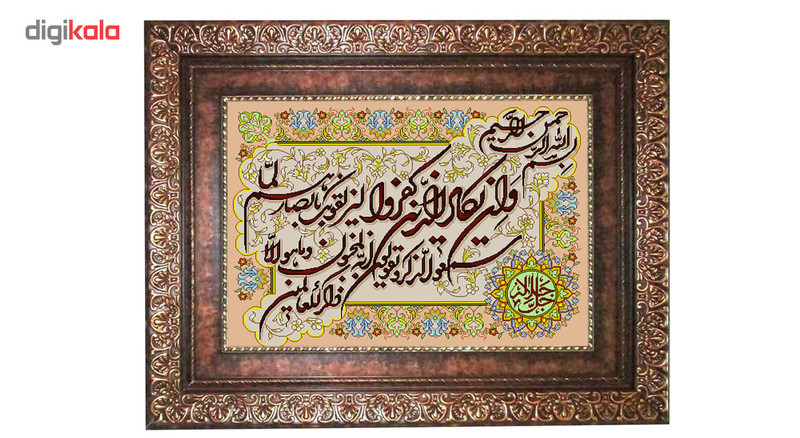 digikala
بسم الله الرحمن الرحیم
وان یکاد الذین کفروا لیزلقونک بابصارهم لما
سمعوا الذکر و یقولون انه لمجنون وما هو الا
ذکر للعالمین
جل جلاله